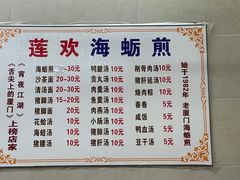 莲欢海蛎煎
宵夜江湖
《舌尖上的厦门》
上榜店家
海蛎煎 20-30元
沙茶面 20-30元
猪肝面 20-30元
清汤面 20-30元
猪脚汤 15-20元
面线汤
花蛤汤 10元
猪肠汤 10元
鸭腿汤 10元
贡丸汤 10元
肉羹汤 10元
鱼羹汤 10元
鱼丸汤 10元
猪心汤 10元
海蛎汤 10元
猪肚汤 10元
剔骨肉汤 10元
猪肝汤 10元
烧肉粽 10元
春卷 5元
咸饭 5元
鸭血汤 5元
豆干汤 5元
始于1982年 老厦门海蛎煎